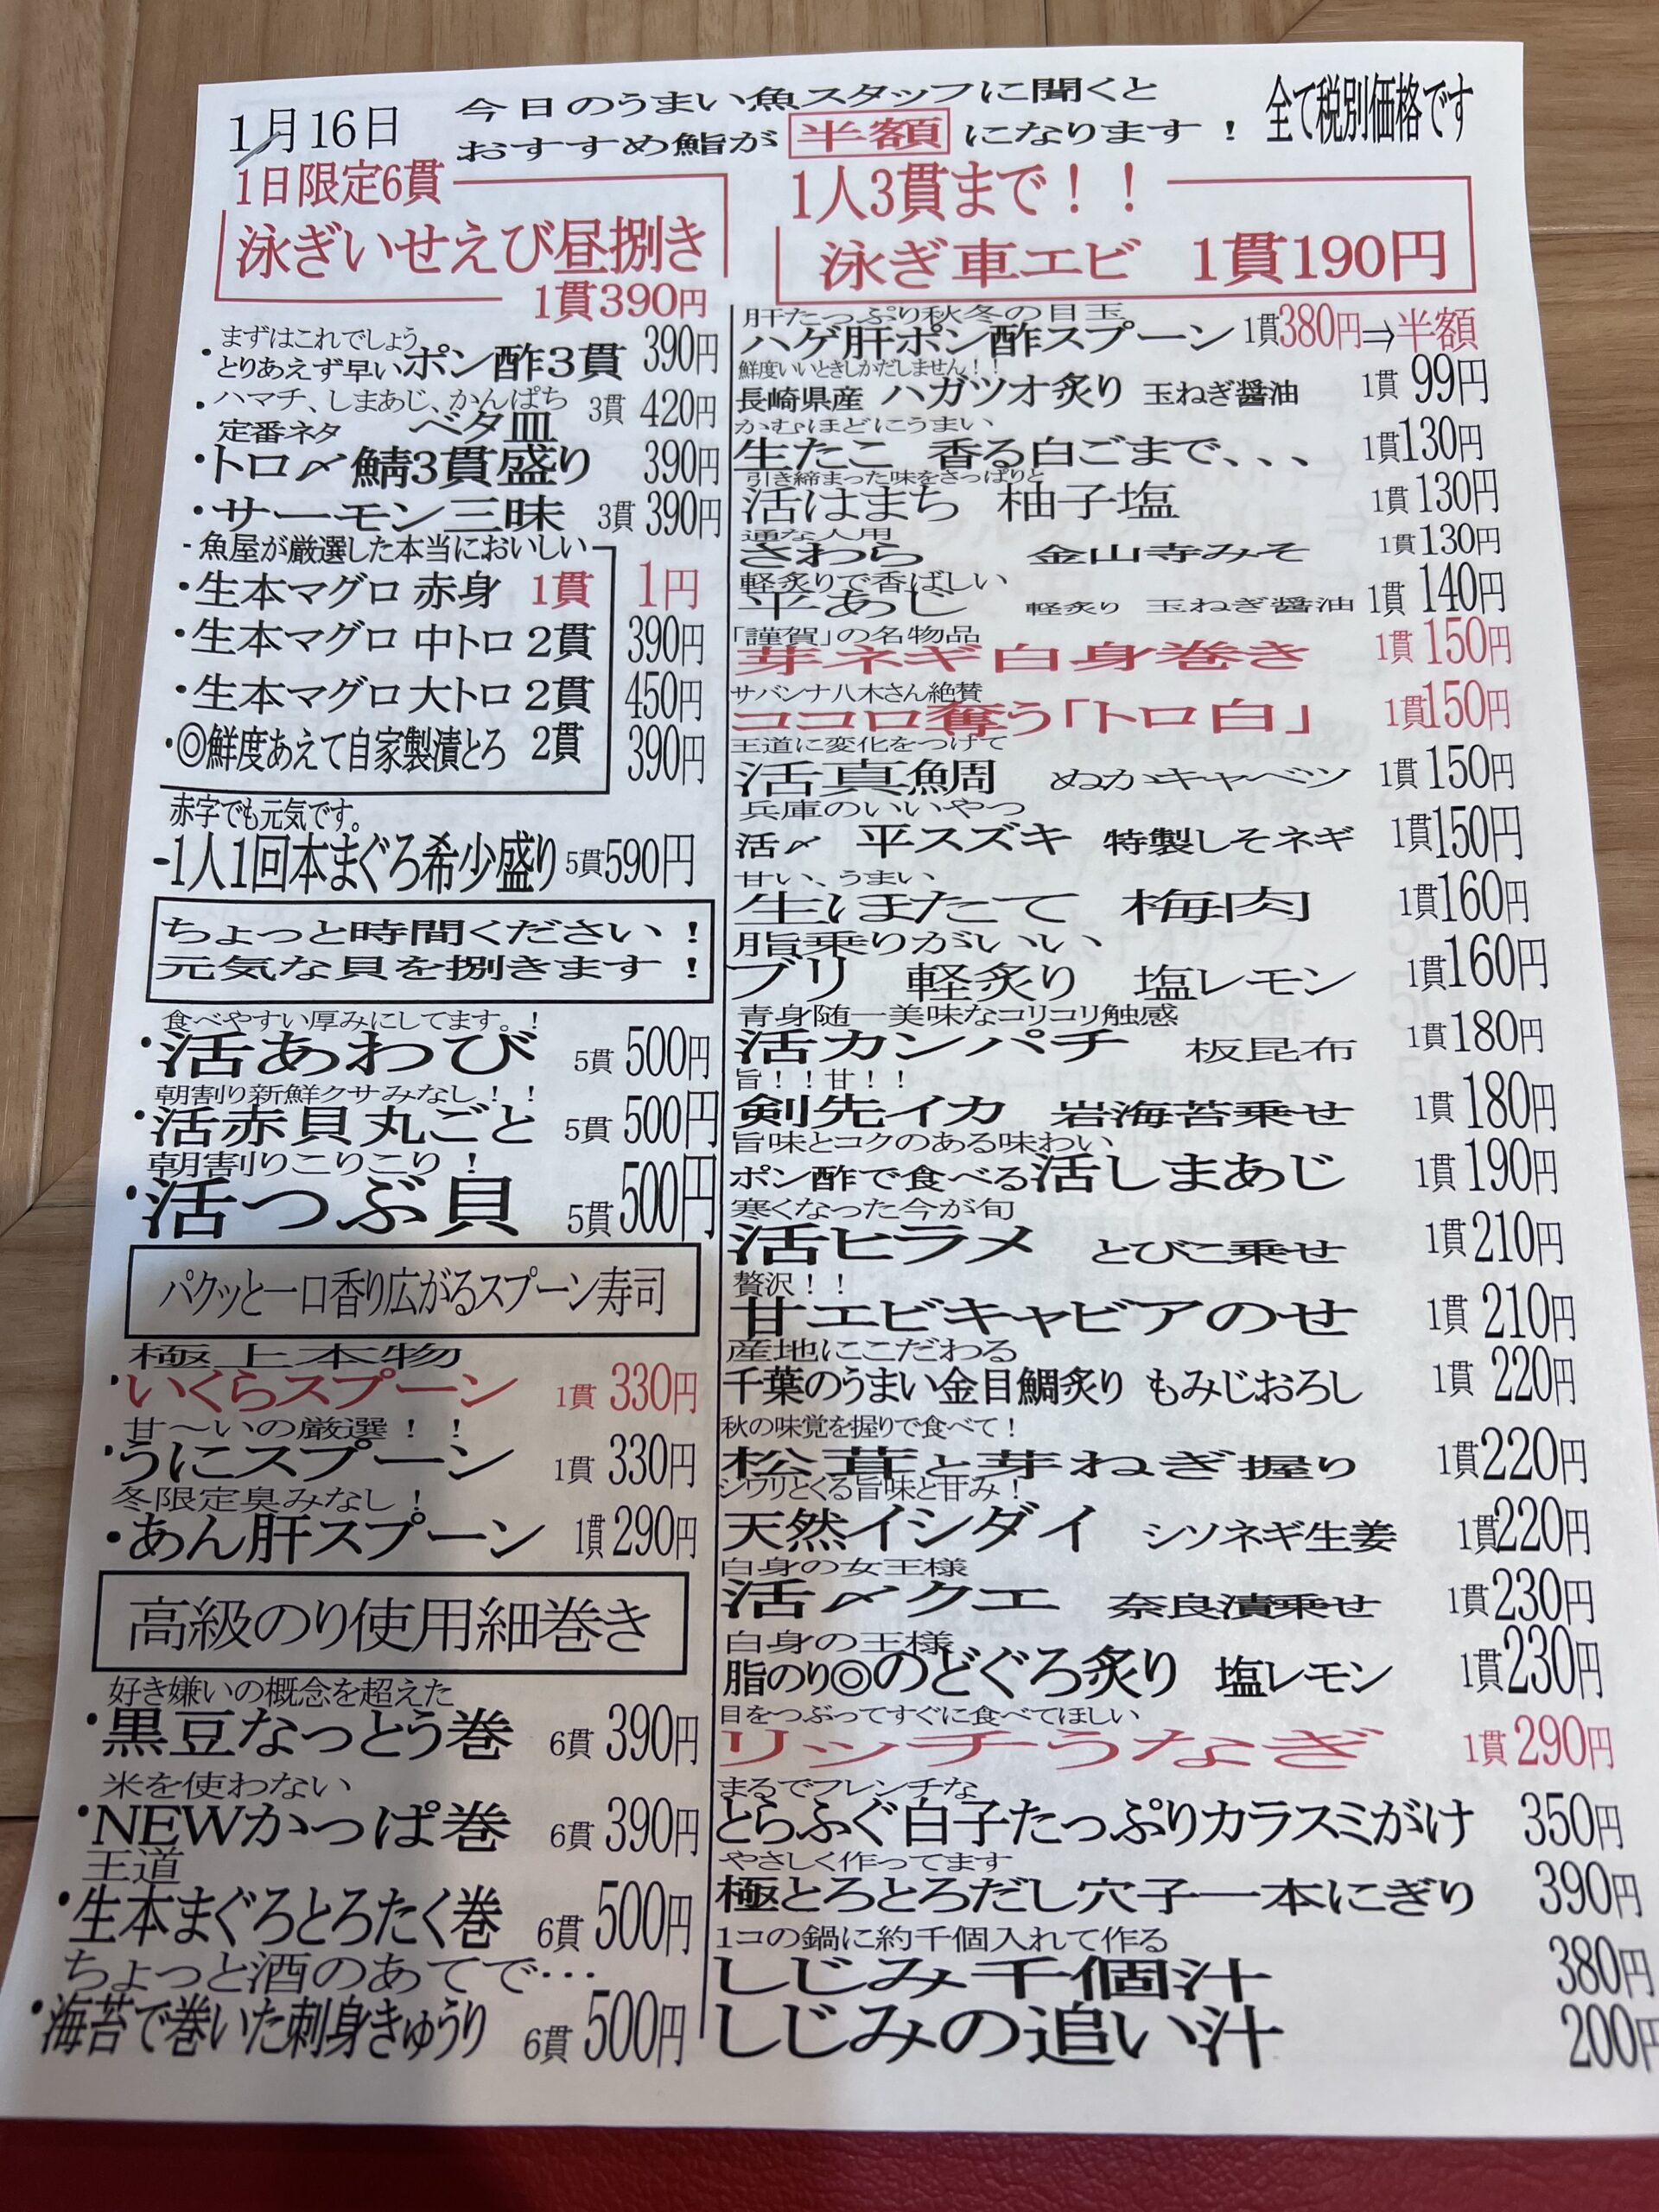 1月16日
今日のうまい魚スタッフに聞くと
おすすめ鮨が 半額 になります！
全て税別価格です
1日限定6貫
泳ぎいせえび昼捌き
1貫390円
1人3貫まで！！
泳ぎ車エビ 1貫190円
まずはこれでしょう
・とりあえず早いポン酢3貫 390円
・ハマチ、しまあじ、かんぱち 3貫 420円
定番ネタ ベタ皿
・トロ〆鯖3貫盛り 390円
・サーモン三昧 3貫 390円
- 魚屋が厳選した本当においしい
・生本マグロ 赤身 1貫 1円
・生本マグロ 中トロ 2貫 390円
・生本マグロ 大トロ 2貫 450円
・◎鮮度あえて自家製漬とろ 2貫 390円
赤字でも元気です。
-1人1回本まぐろ希少盛り 5貫590円
ちょっと時間ください！
元気な貝を捌きます！
食べやすい厚みにしてます。！
・活あわび 5貫 500円
朝割り新鮮クサみなし！！
・活赤貝丸ごと 5貫 500円
朝割りこりこり！
・活つぶ貝 5貫 500円
パクッと一口香り広がるスプーン寿司
極上本物
・いくらスプーン 1貫 330円
甘～いの厳選！！
・うにスプーン 1貫 330円
冬限定臭みなし！
・あん肝スプーン 1貫 290円
高級のり使用細巻き
好き嫌いの概念を超えた
・黒豆なっとう巻 6貫 390円
米を使わない
・NEWかっぱ巻 6貫 390円
王道
・生本まぐろとろたく巻 6貫 500円
ちょっと酒のあてで…
・海苔で巻いた刺身きゅうり 6貫 500円
肝たっぷり秋冬の目玉
ハゲ肝ポン酢スプーン 1貫380円⇒半額
鮮度いいときしかだしません！！
長崎県産 ハガツオ炙り 玉ねぎ醤油 1貫 99円
かむほどにうまい
生たこ 香る白ごまで、、、 1貫130円
引き締まった味をさっぱりと
活はまち 柚子塩 1貫130円
通な人用
さわら 金山寺みそ 1貫130円
軽炙りで香ばしい
平あじ 軽炙り 玉ねぎ醤油 1貫 140円
「謹賀」の名物品
芽ネギ白身巻き 1貫150円
サバンナ八木さん絶賛
ココロ奪う「トロ白」 1貫150円
王道に変化をつけて
活真鯛 ぬかキャベツ 1貫150円
兵庫のいいやつ
活〆 平スズキ 特製しそネギ 1貫150円
甘い、うまい
生ほたて 梅肉 1貫160円
脂乗りがいい、
ブリ 軽炙り 塩レモン 1貫160円
青身随一美味なコリコリ触感
活カンパチ 板昆布 1貫180円
旨！！甘！！
剣先イカ 岩海苔乗せ 1貫180円
旨味とコクのある味わい
ポン酢で食べる活しまあじ 1貫190円
寒くなった今が旬
活ヒラメ とびこ乗せ 1貫210円
贅沢！！
甘エビキャビアのせ 1貫 210円
産地にこだわる
千葉のうまい金目鯛炙り もみじおろし 1貫 220円
秋の味覚を握りで食べて！
松茸と芽ねぎ握り 1貫220円
ジワリとくる旨味と甘み！
天然イシダイ シソネギ生姜 1貫220円
白身の女王様
活〆クエ 奈良漬乗せ 1貫230円
白身の王様
脂のり◎のどぐろ炙り 塩レモン 1貫230円
目をつぶってすぐに食べてほしい
リッチうなぎ 1貫290円
まるでフレンチな
とらふぐ白子たっぷりカラスミがけ 350円
やさしく作ってます
極とろとろだし穴子一本にぎり 390円
1コの鍋に約千個入れて作る
しじみ千個汁 380円
しじみの追い汁 200円